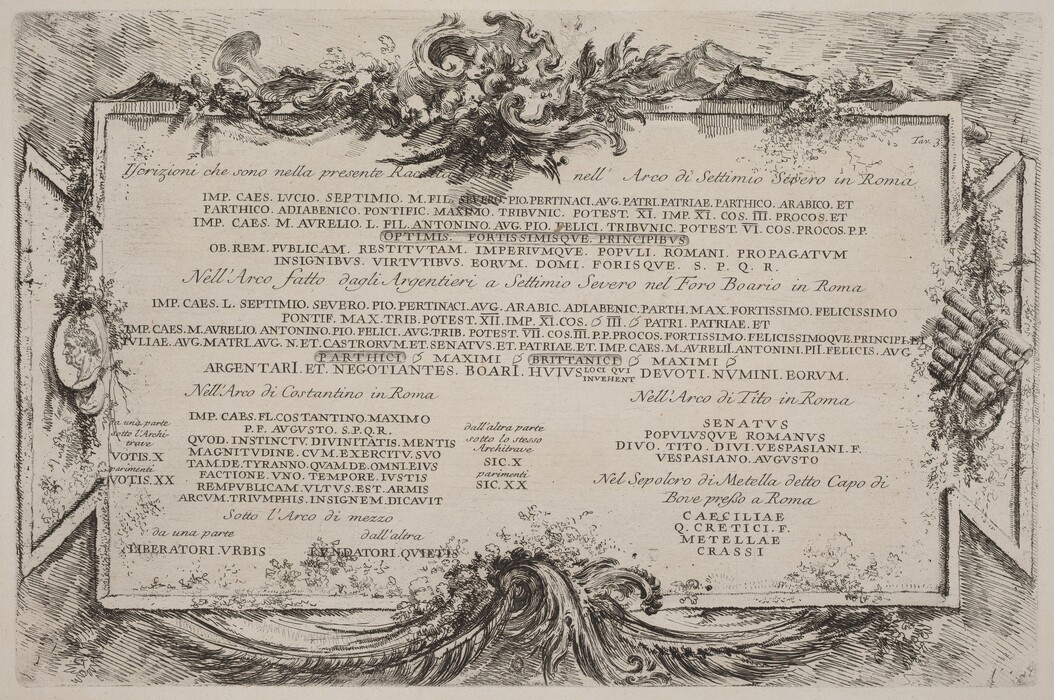 Tav. 3
Iscrizioni che sono nella presente nell' Arco di Settimio Severo in Roma
IMP. CAES. LVCIO. SEPTIMIO. M. FIL. SEVERO. PIO. PERTINACI. AVG. PATRI. PATRIAE. PARTHICO. ARABICO. ET
PARTHICO. ADIABENICO. PONTIFIC. MAXIMO. TRIBVNIC. POTEST. XI. IMP. XI. COS. III. PROCOS. ET
IMP. CAES. M. AVRELIO. L. FIL. ANTONINO. AVG. PIO. FELICI. TRIBVNIC. POTEST. VI. COS. PROCOS. P. P.
OPTIMIS. FORTISSIMISQVE. PRINCIPIBVS
OB. REM. PVBLICAM. RESTITVTAM. IMPERIVMQVE. POPVLI. ROMANI. PROPAGATVM
INSIGNIBVS. VIRTVTIBVS. EORVM. DOMI. FORISQVE. S. P. Q. R.
Nell'Arco fatto dagli Argentieri a Settimio Severo nel Foro Boario in Roma
IMP. CAES. L. SEPTIMIO. SEVERO. PIO. PERTINACI. AVG. ARABIC. ADIABENIC. PARTH. MAX. FORTISSIMO. FELICISSIMO
PONTIF. MAX. TRIB. POTEST. XII. IMP. XI. COS. III. PATRI. PATRIAE. ET
IMP. CAES. M. AVRELIO. ANTONINO. PIO. FELICI. AVG. TRIB. POTEST. VII. COS. III. P. P. PROCOS. FORTISSIMO. FELICISSIMOQVE. PRINCIPI. ET
IVLIAE. AVG. MATRI. AVG. N. ET. CASTRORVM. ET. SENATVS. ET. PATRIAE. ET. IMP. CAES. M. AVRELII. ANTONINI. PII. FELICIS. AVG
PARTHICI MAXIMI BRITTANICI MAXIMI
ARGENTARI. ET. NEGOTIANTES. BOARI. HVIVS LOCI QVI INVEHENT DEVOTI. NVMINI. EORVM.
Nell'Arco di Costantino in Roma
da una parte
sotto l'Archi-
trave
VOTIS. X
parimenti
VOTIS. XX
IMP. CAES. FL. COSTANTINO. MAXIMO
P. F. AVGVSTO. S. P. Q. R.
QVOD. INSTINCTV. DIVINITATIS. MENTIS
MAGNITVDINE. CVM. EXERCITV. SVO
TAM. DE. TYRANNO. QVAM. DE. OMNI. EIVS
FACTIONE. VNO. TEMPORE. IVSTIS
REMPVBLICAM. VLTVS. EST. ARMIS
ARCVM. TRIVMPHIS. INSIGNEM. DICAVIT
dall'altra parte
sotto lo stesso
Architrave
SIC. X
parimenti
SIC. XX
Sotto l'Arco di mezzo
da una parte dall'altra
LIBERATORI. VRBIS FVNDATORI. QVIETIS
Nell'Arco di Tito in Roma
SENATVS
POPVLVSQVE ROMANVS
DIVO. TITO. DIVI. VESPASIANI. F.
VESPASIANO. AVGVSTO
Nel Sepolcro di Metella detto Capo di
Bove presso a Roma
CAECILIAE
Q. CRETICI. F.
METELLAE
CRASSI